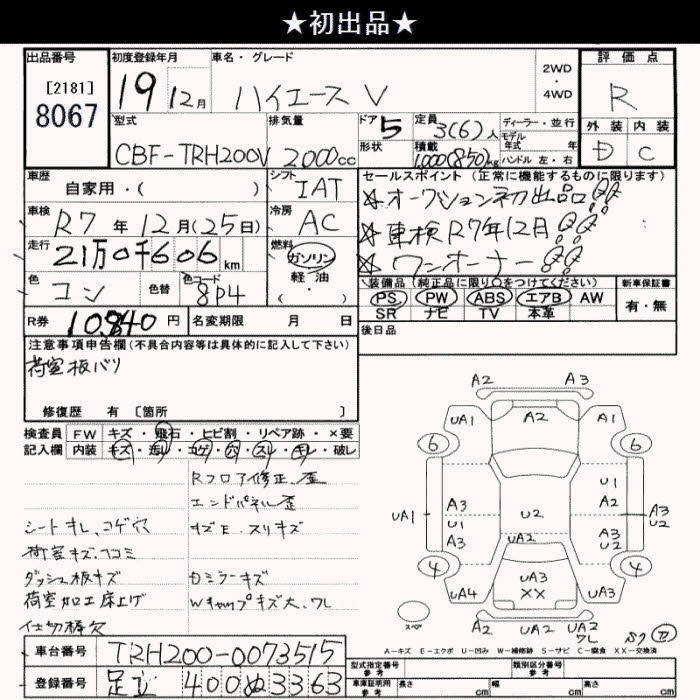 ★初出品★
出品番号 初度登録年月 車名・グレード 2WD・4WD 評価点
[2181]
8067
19 12月 ハイエース V R
型式 排気量 ドア 5 定員 3(6)人 ディーラー・並行 外装 内装
CBF-TRH200V 2000cc 形状 積載 1,000(850)kg モデル年式 年 D C
ハンドル 左・右
車歴 自家用・( ) シフト IAT セールスポイント(正常に機能するものに限ります)
☆オークション初出品!!
車検 R7年12月(25日) 冷房 AC ☆車検R7年12月!!
走行 21万0千606km 燃料 ガソリン 軽油 ・( ) ☆ワンオーナー!!
色 コン 色替 色コード 8P4 装備品(純正品に限り○をつけてください) 新車保証書
PS PW ABS エアB AW 有・無
SR ナビ TV 本革
R券 10,840円 名変期限 月 日 後日品
注意事項申告欄(不具合内容等は具体的に記入して下さい)
荷室板バリ
修復歴 有 〔箇所 〕
検査員 FW キズ・飛石・ヒビ割・リペア跡・×要
記入欄 内装 キズ・汚レ・コゲ・穴・スレ・キレ・破レ
Rフロア修正、歪
エンドパネル歪
シートキレ、コゲ穴 キズE、スリキズ
荷室キズ、凹コミ
ダッシュ板キズ Dミラーキズ
荷室加工床上げ Wキャップキズ大、ワレ
仕切棒欠
A2 A3
UA1 A2 A1
6 6
U1
UA1 A3 U1 A3 U2 A2 A3 U2 A3 U2
UA2
4 4
UA4 UA3 XX UA3
スペア
A2 UA2 UA2 ワレ
A-キズ E-エクボ U-凹み W-補修跡 S-サビ C-腐食 XX-交換済
車台番号 TRH200-0073515
登録番号 足立 400 ぬ 3363
型式指定番号 参考 類別区分番号 参考
車庫証明用 参考 長さ cm 幅 cm 高さ cm